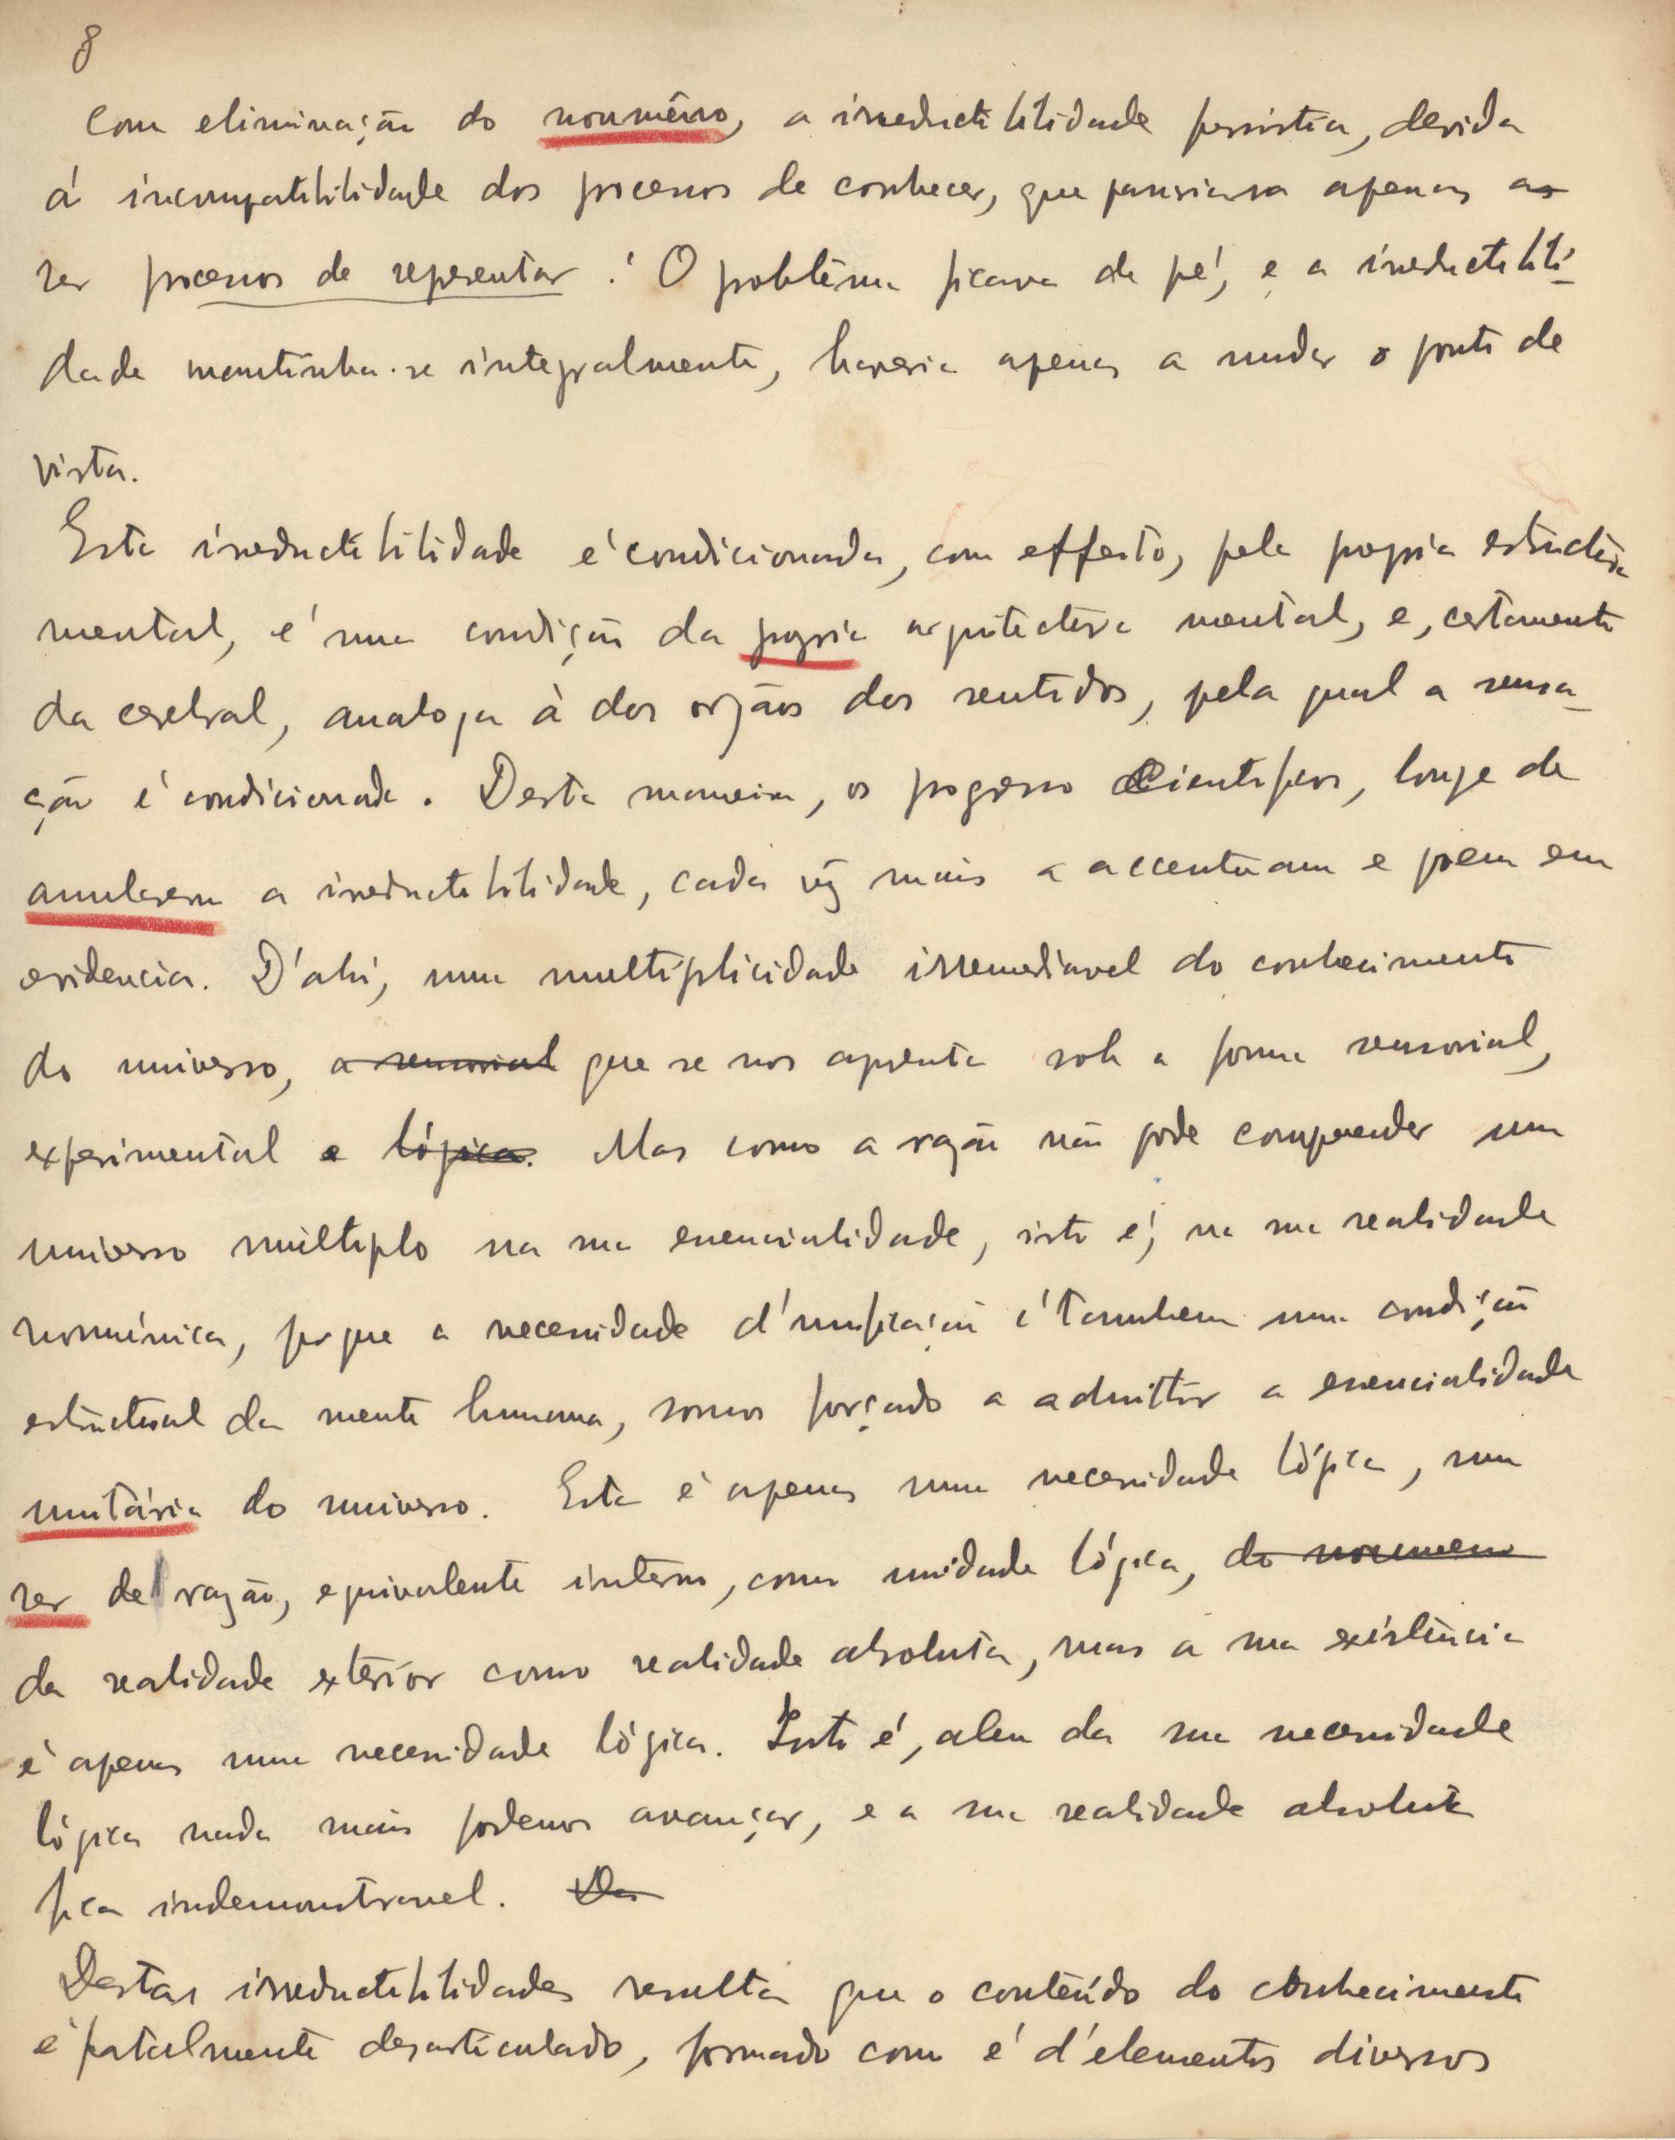 8
com eliminação do noumêno, a irreductibilidade persistia, devida
á incompatibilidade dos processos de conhecer, que passariam apenas a
ser processos de representar! O problêma ficava de pé, e a irreductibili-
dade mantinha-se integralmente, haveria apenas a mudar o ponto de
vista.
Esta irreductibilidade é condicionada, com effeito, pela propria estructura
mental, é uma condição da propria arquitectura mental, e, certamente
da cerebral, analoga à dos orgãos dos sentidos, pela qual a sensa-
ção é condicionada. Desta maneira, os progresso scientificos, longe de
anularem a irreductibilidade, cada vez mais a accentuam e poem em
evidencia. D'ahi, uma multiplicidade irremediavel do conhecimento
do universo, a sensorial que se nos apresenta sob a forma sensorial,
experimental e lógica. Mas como a razão não pode comprender um
universo multiplo na sua essencialidade, isto é, na sua realidade
noumênica, porque a necessidade d'unificação é tambem uma condição
estructural da mente humana, somos forçado a admittir a essencialidade
unitária do universo. Esta é apenas uma necessidade lógica, um
ser de razão, equivalente interno, como unidade lógica, do noumeno
da realidade exterior como realidade absoluta, mas a sua existência
é apenas uma necessidade lógica. Isto é, alem da sua necessidade
lógica nada mais podemos avançar, e a sua realidade absoluta
fica indemonstravel. Da
Destas irreductibilidades resulta que o conteúdo do conhecimento
é fatalmente desarticulado, formado com é d'elementos diversos